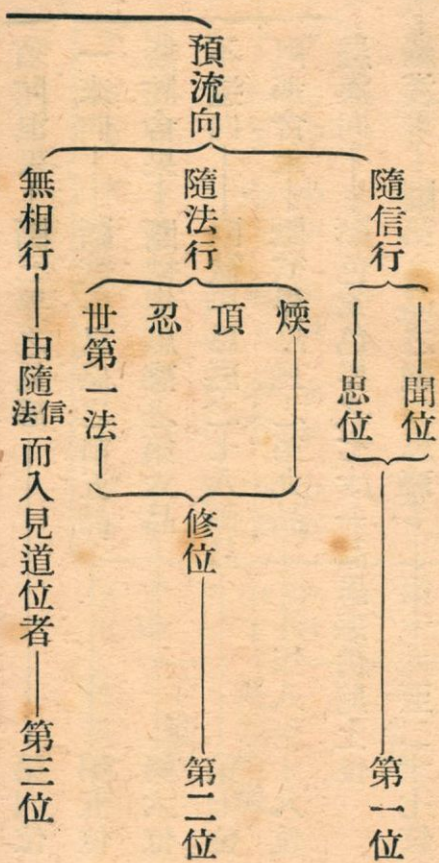 預流向
隨信行
聞位
思位
第一位
隨法行
煗
頂
忍
世第一法
修位
第二位
無相行
由隨信法而入見道位者
第三位